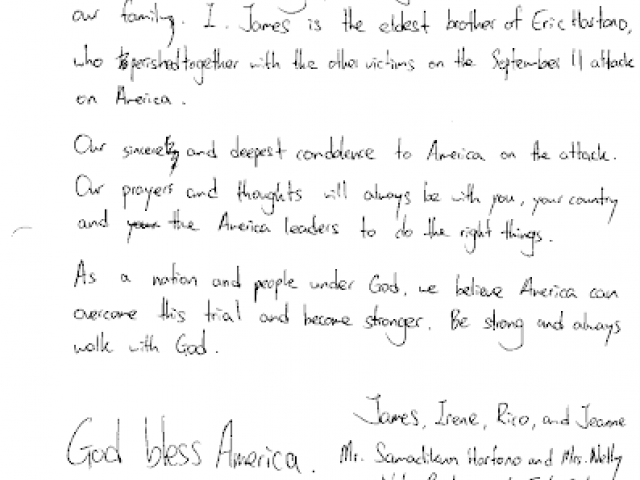 our family. I. James is the eldest brother of Eric Hartono,
who perished together with the other victims on the September 11 attack
on America.
Our sincerety and deepest conddence to America on the attack.
Our prayers and thoughts will always be with you, your country
and your the America leaders to do the right things.
As a nation and people under God, we believe America can
overcome this trial and become stronger. Be strong and always
walk with God.
God bless America.
James, Irene, Rico, and Jeanne
Mr. Samadikun Hartono and Mrs. Nelly